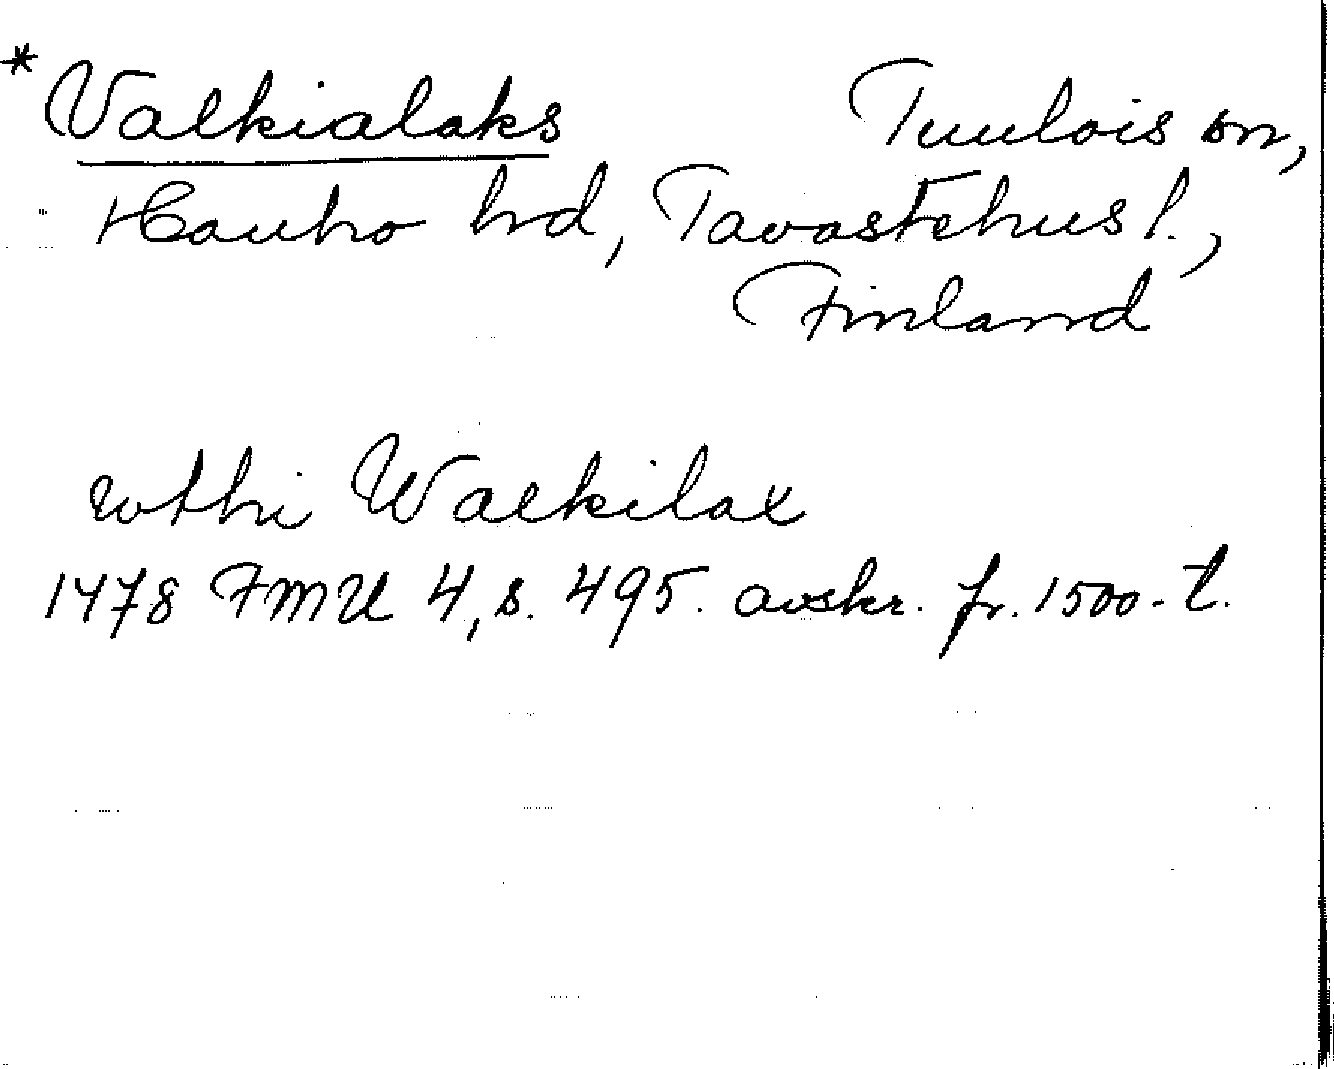 * Valkialaks Tuulois sn,
Hauho hd, Tavastehus l.,
Finland
wthi Walkilax
1478 FMU 4, s. 495. avskr. fr. 1500-t.